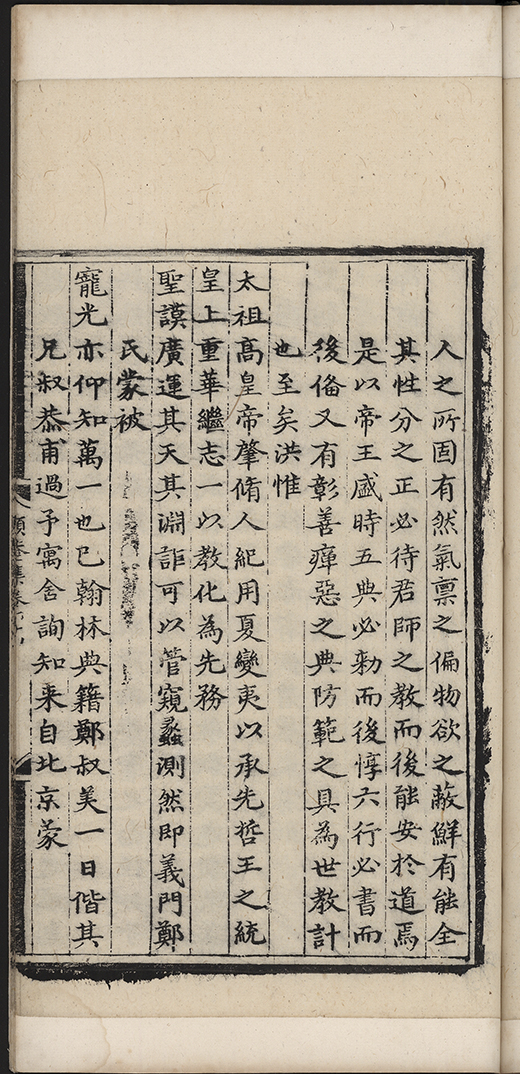 人之所固有然氣禀之偏物欲之蔽鮮有能全
其性分之正必待君師之教而後能安於道焉
是以帝王盛時五典必勑而後惇六行必書而
後俻又有彰善癉惡之典防範之具為世教計
也至矣洪惟
太祖髙皇帝肇脩人紀用夏變夷以承先哲王之統
皇上重華繼志一以教化為先務
聖謨廣運其天其淵詎可以管窺蠡測然即義門鄭
氏蒙被
寵光亦仰知萬一也已翰林典籍鄭叔美一日偕其
兄叔恭甫過予寓舍詢知来自北京蒙
頤菴集卷